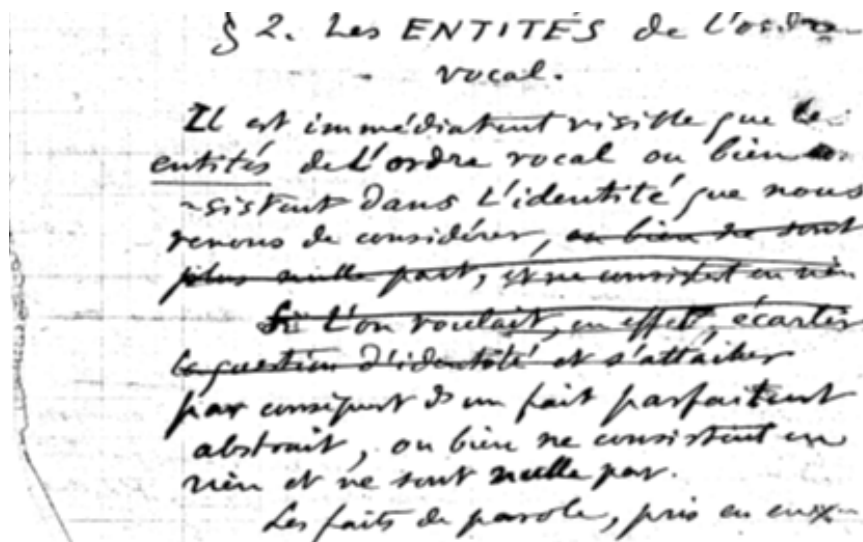 § 2. Les ENTITÉS de l'ordre
vocal.
Il est immédiatement visible que les
entités de l'ordre vocal ou bien con-
-sistent dans l'identité que nous
venons de considérer, ou bien ne sont
plus nulle part, et ne consistent en rien
Si l'on voulait, en effet, écarter
la question d'identité et s'attacher
par conséquent ds un fait parfaitement
abstrait, ou bien ne consistent en
rien et ne sont nulle part.
Les faits de parole, pris en eux-